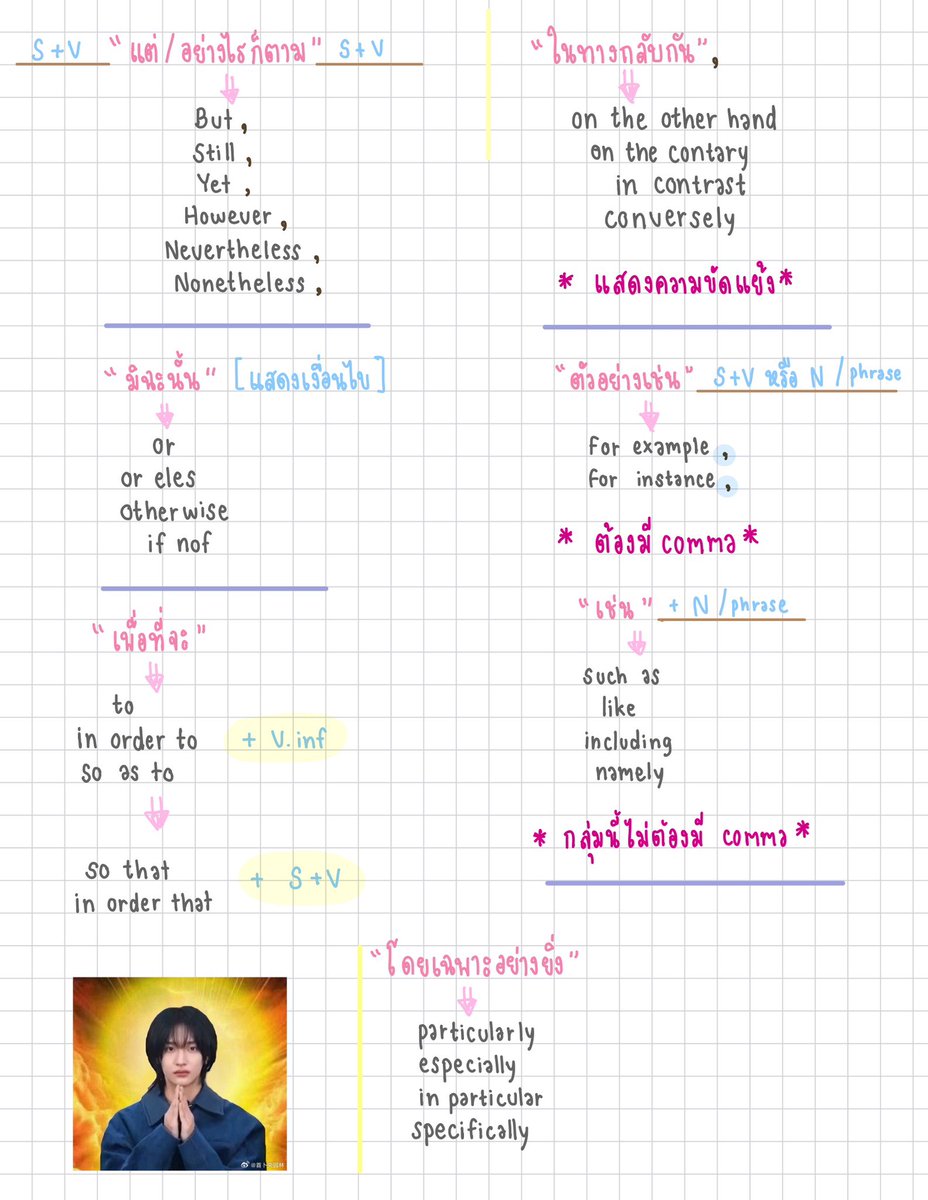 S+V "แต่/อย่างไรก็ตาม" S+V
But,
Still,
Yet,
However,
Nevertheless,
Nonetheless,
"ในทางกลับกัน",
on the other hand
on the contary
in contrast
conversely
* แสดงความขัดแย้ง*
"มิฉะนั้น" [แสดงเงื่อนไข]
or
or eles
otherwise
if nof
"ตัวอย่างเช่น" S+V หรือ N/phrase
for example,
for instance,
* ต้องมี comma*
"เพื่อที่จะ"
to
in order to + V.inf
so as to
so that + S+V
in order that
"เช่น" + N/phrase
such as
like
including
namely
* กลุ่มนี้ไม่ต้องมี comma*
"โดยเฉพาะอย่างยิ่ง"
particularly
especially
in particular
specifically